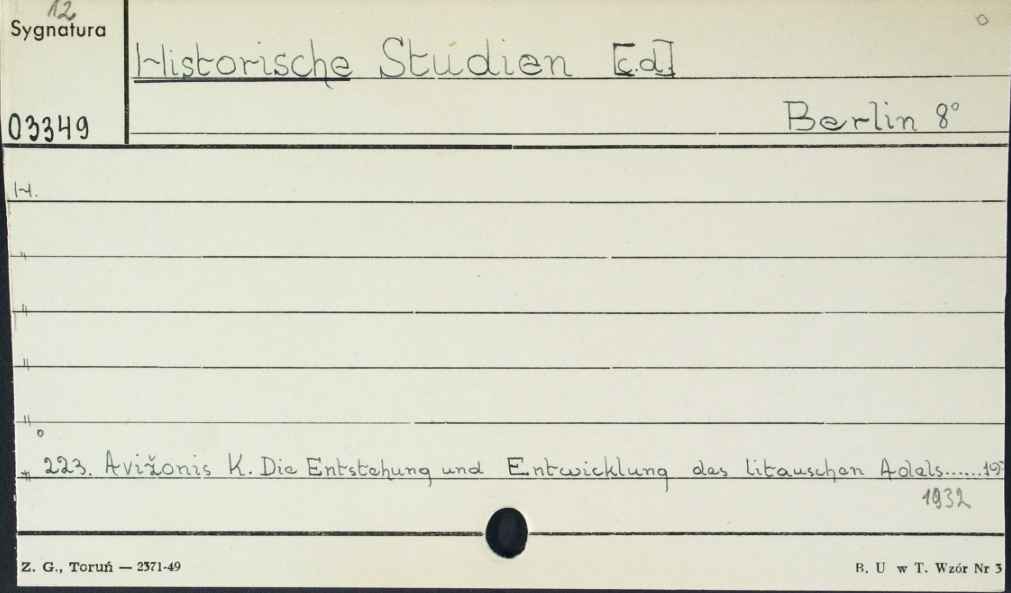 12
Sygnatura
Historische Studien [c.d]
03349
Berlin 8°
H.
"
"
"
"
223. Avižonis K. Die Entstehung und Entwicklung des litauschen Adels......19
1932
Z. G., Toruń — 2371-49
B. U w T. Wzór Nr 3